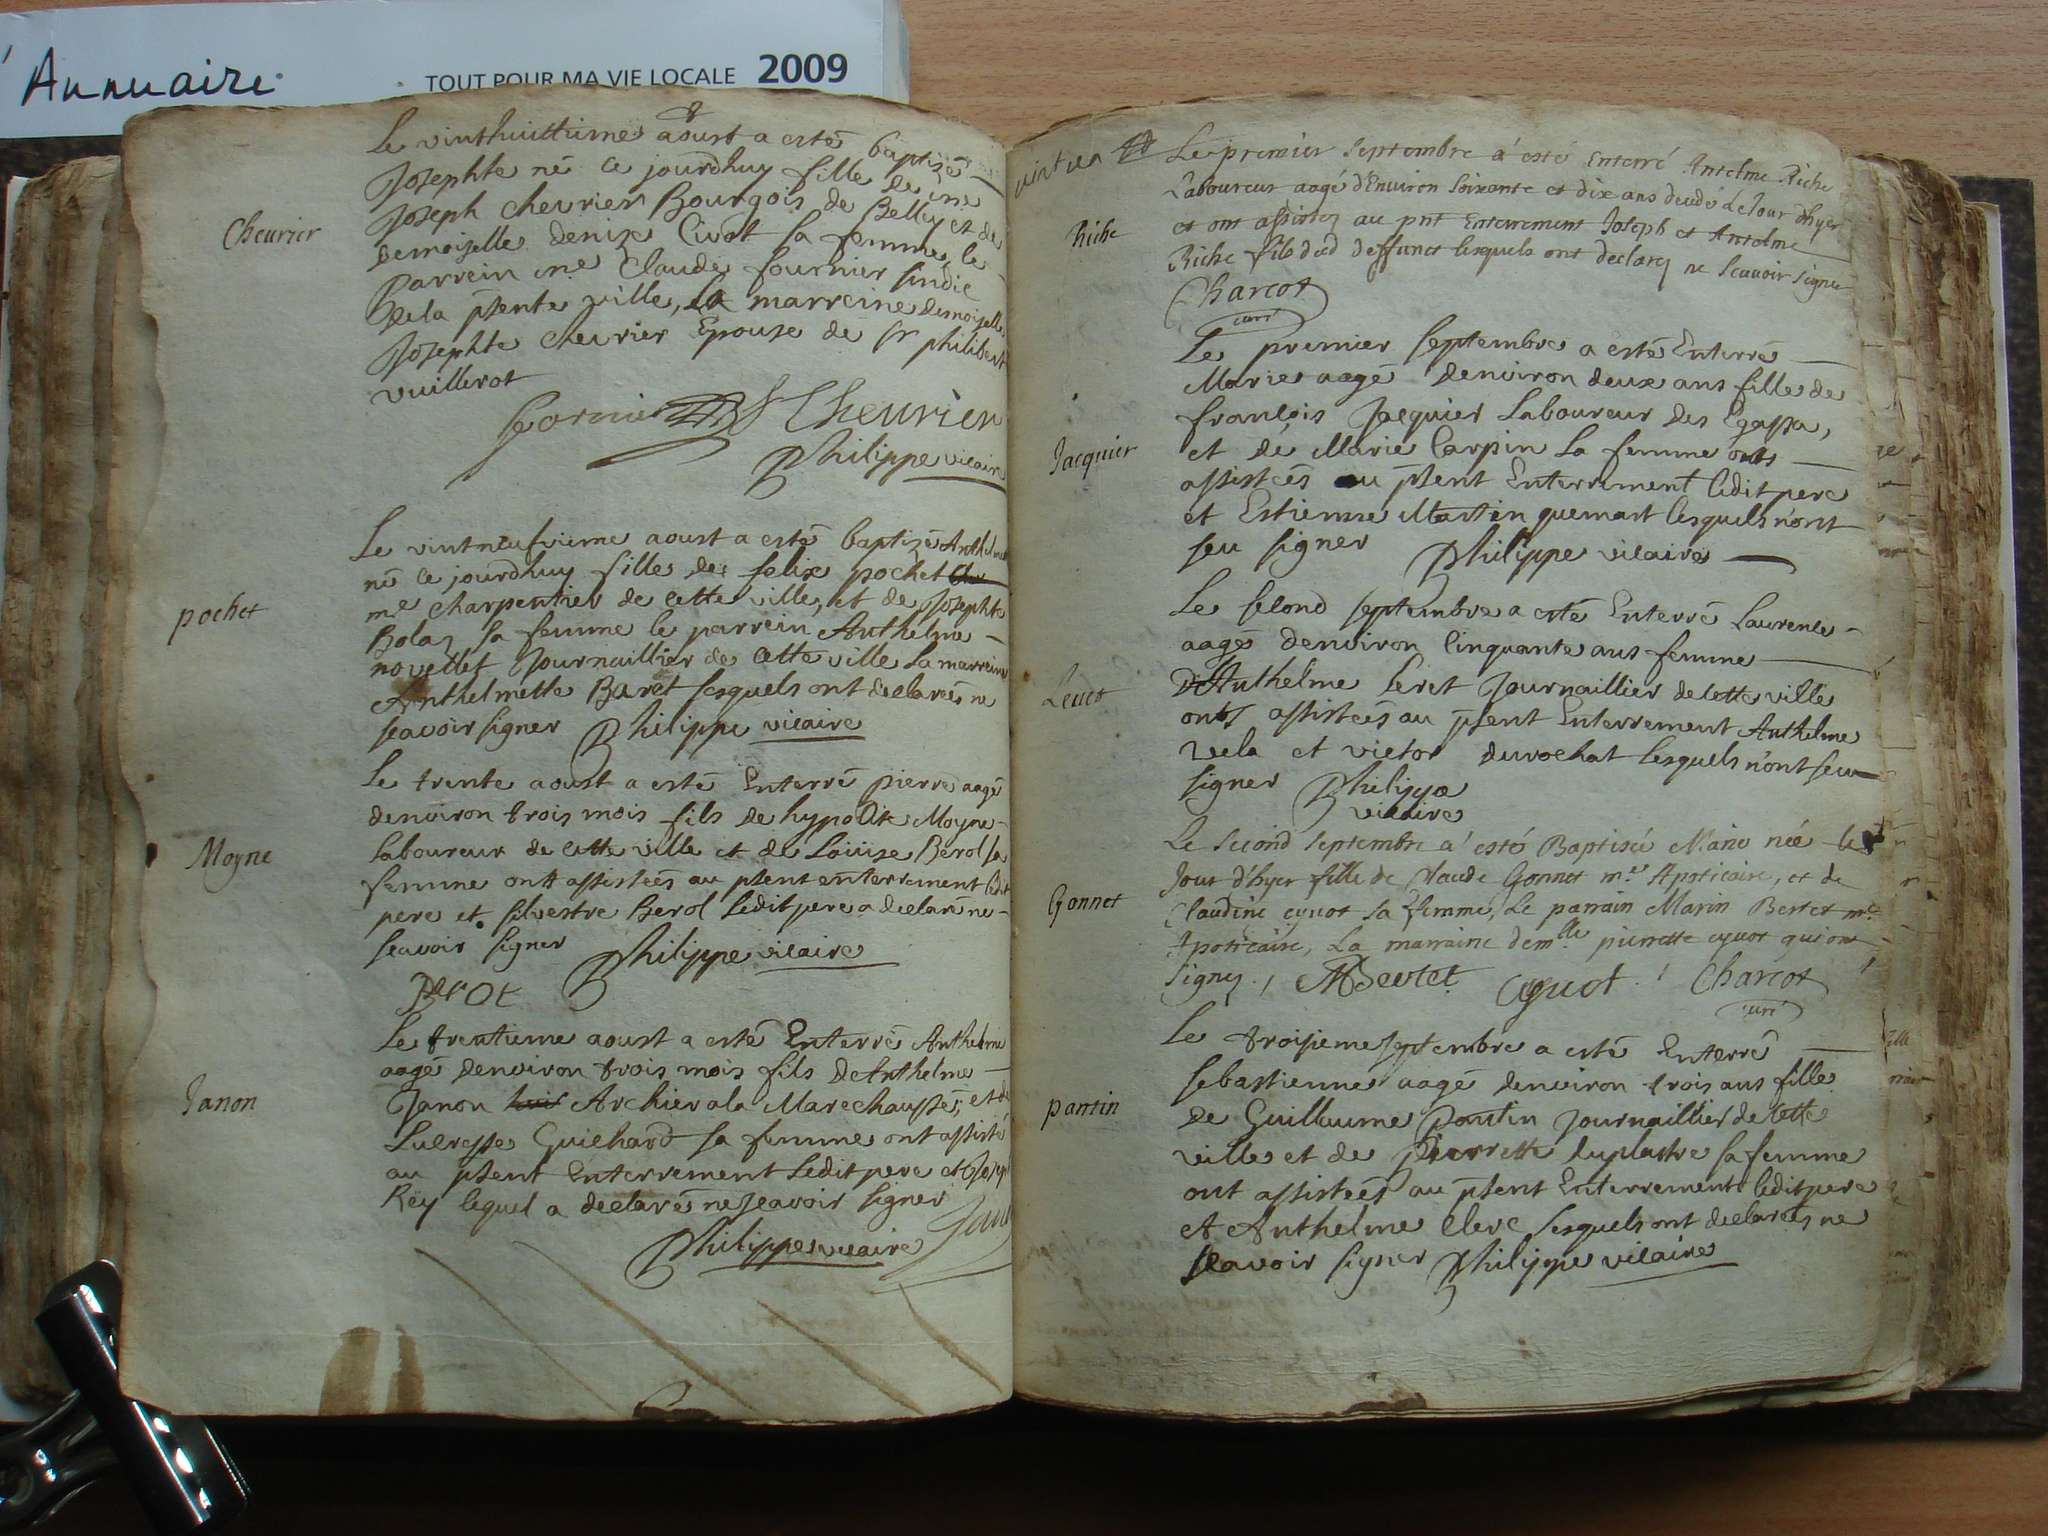 Annuaire
TOUT POUR MA VIE LOCALE 2009
Le vinthuittieme aoust a esté baptisé
Josephte né ce jourdhuy fille de me
Chevrier
Joseph chevrier Bourgois de Belley et de
Demoiselle denize Civot sa femme, le
parrein me Claude fournier sindic
de la psente ville, La marreine demoiselle
Josephte chevrier Epouse de sr philibert
vuillerot
Chevrier
Philippe vicaire
Le vintneufvieme aoust a esté baptisé Anthelme
né ce jourdhuy fille de felix pochet
pochet
me charpentier de cette ville, et de Josephte
Bolaz sa femme le parrein Anthelme
novellet Journaillier de cette ville La marreine
Anthelmette Baret lesquels ont declarés ne
scavoir signer Philippe vicaire
Le trente aoust a esté Enterré pierre aagé
denviron trois mois fils de hypolite Moyne
Moyne
laboureur de cette ville et de Loüise Berol sa
femme ont assistées au psent enterrement ledit
pere et silvestre Berol ledit pere a declaré ne
scavoir signer Philippe vicaire
Le trentieme aoust a esté Enterré Anthelme
aagé denviron trois mois fils de Anthelme
Janon
Janon Archier a la Marechaussée, et de
Lucresse Guichard sa femme ont assisté
au psent Enterrement ledit pere et Joseph
Rey lequel a declaré ne scavoir signer
Philippe vicaire
vint un
Le premier septembre a esté Enterré Antelme Riche
Laboureur aagé d'Environ soixante et dix ans decedé Le Jour d'hyer
Riche
et ont assistez au pnt Enterrement Joseph et Antelme
Riche fils dud deffunct lesquels ont declarez ne scavoir signer
Charcot
curé
Le premier septembre a esté Enterré
Marie aagé denviron deux ans fille de
françois Jacquier Laboureur des Egassa,
Jacquier
et de Marie Carpin sa femme onts
assistées au psent Enterrement ledit pere
et Estienne Martin quemart lesquels n'ont
seu signer Philippe vicaire
Le second septembre a esté Enterré Laurence
aage denviron cinquante ans femme
D'Anthelme Leret Journaillier de cette ville
onts assistées au psent Enterrement Anthelme
Vela et victor durochat lesquels n'ont seu
signer Philippe
vicaire
Le second septembre a esté Baptisée Marie née le
Jour d'hyer fille de Claude Gonnet me Apoticaire, et de
Gonnet
Claudine cyvot sa femme, Le parrain Marin Bertet me
Apoticaire, La marraine demlle pierrette cyvot qui ont
signez., MBertet Cyvot Charcot
curé
Le troisieme septembre a esté Enterré
sebastienne aagé denviron trois ans fille
pantin
de Guillaume pantin Journaillier de cette
ville et de Pierrette luplastre sa femme
ont assistées au psent Enterrement ledit pere
et Anthelme Clerc lesquels ont declarés ne
scavoir signer Philippe vicaire